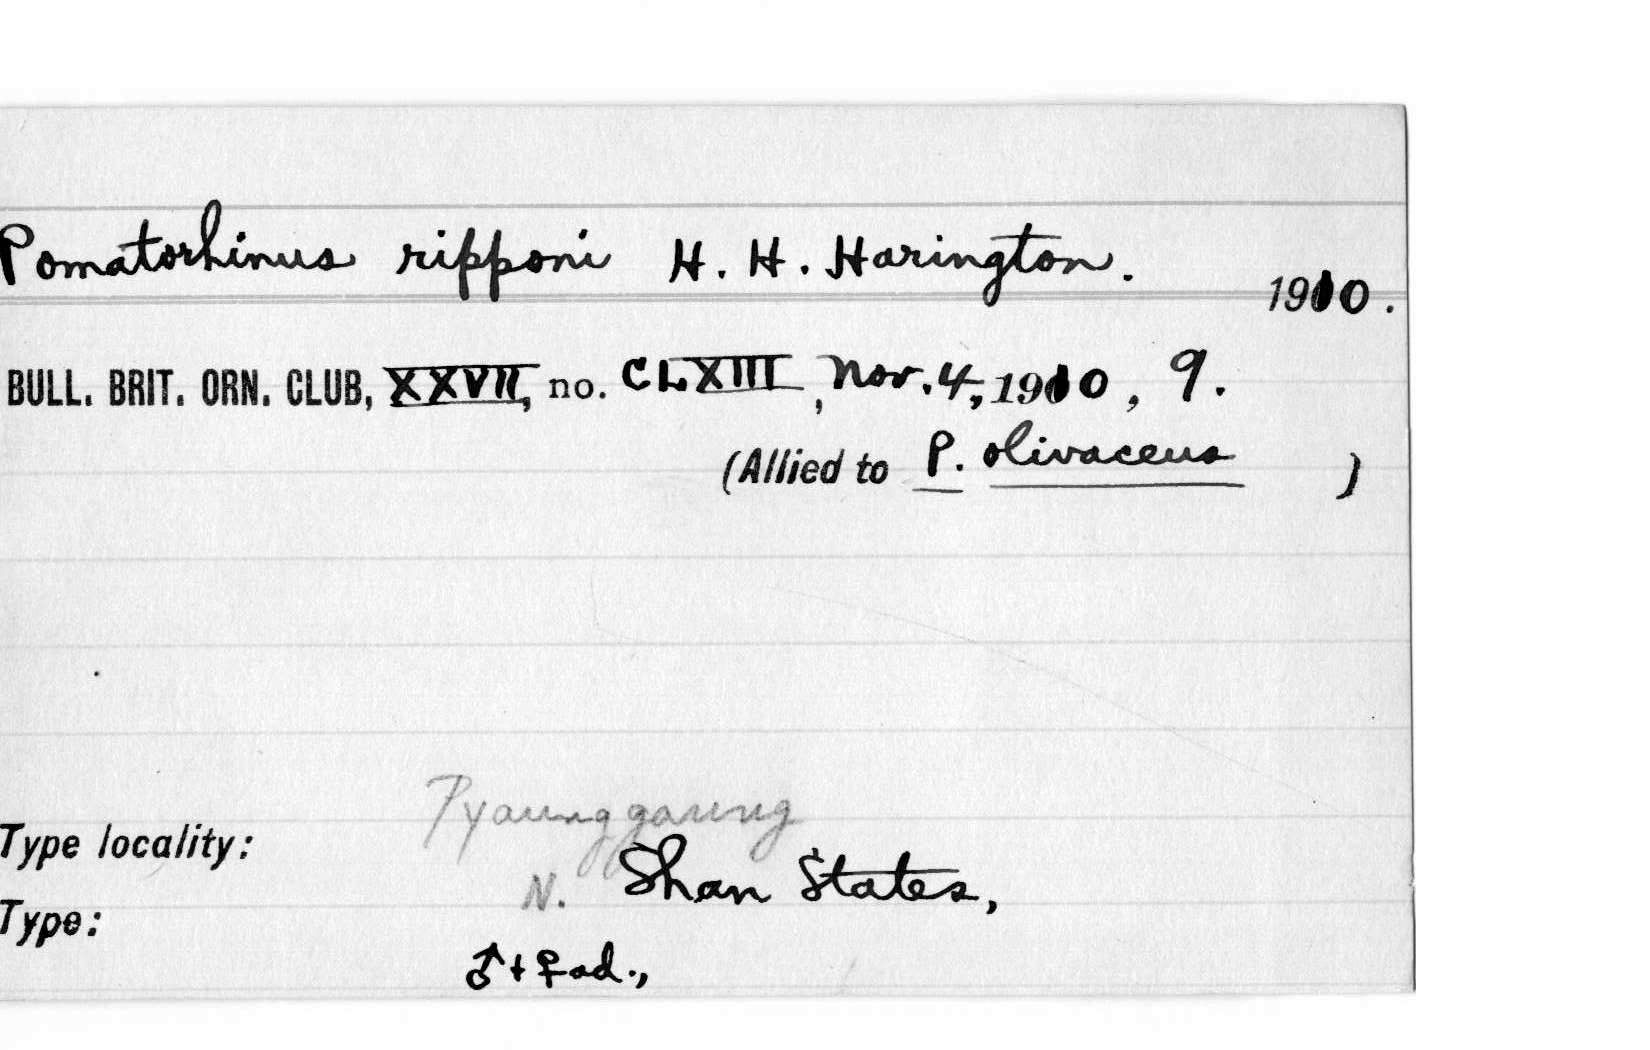 Pomatorhinus ripponi H. H. Harington.
1910.
BULL. BRIT. ORN. CLUB, XXVII, no. CLXIII, Nov. 4, 1910, 9.
(Allied to P. olivaceus )
Pyaunggaung
Type locality:
N. Shan States,
Type:
♂ + ♀ ad.,